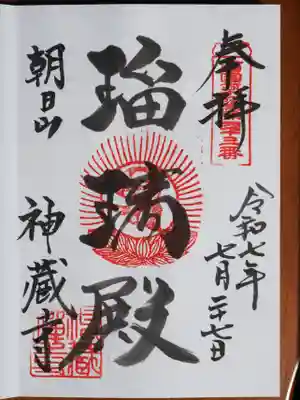 奉拝
令和七年
七月二十七日
瑠璃殿
朝日山 神蔵寺